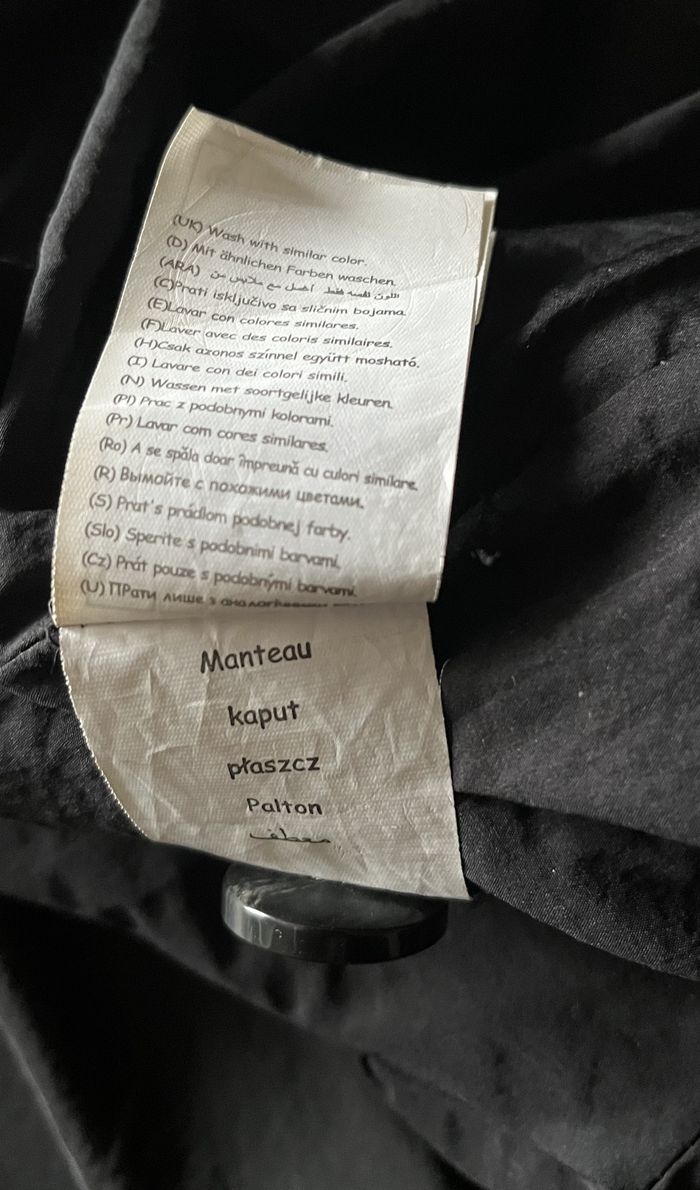 (UK) Wash with similar color.
(D) Mit ähnlichen Farben waschen.
(ARA) اللون نفسه فقط اغسل مع ملابس من
(C)Prati isključivo sa sličnim bojama.
(E)Lavar con colores similares.
(F)Laver avec des coloris similaires.
(H)Csak azonos színnel együtt mosható.
(I) Lavare con dei colori simili.
(N) Wassen met soortgelijke kleuren.
(Pl) Prac z podobnymi kolorami.
(Pr) Lavar com cores similares.
(Ro) A se spăla doar împreună cu culori similare.
(R) Вымойте с похожими цветами.
(S) Prat's prádlom podobnej farby.
(Slo) Sperite s podobnimi barvami.
(Cz) Prát pouze s podobnými barvami.
(U) ПРати лише з
Manteau
kaput
płaszcz
Palton
معطف